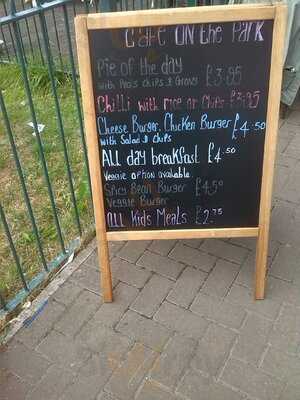 Cafe ON the PARK
Pie of the day
with Peas chips & Gravy £3.95
Chilli with rice or chips £3.95
Cheese Burger. Chicken Burger £4.50
with Salad & chips
ALL day breakfast £4.50
Veggie option available.
Spicy Bean Burger £4.50
Veggie Burger
ALL Kids Meals £2.75